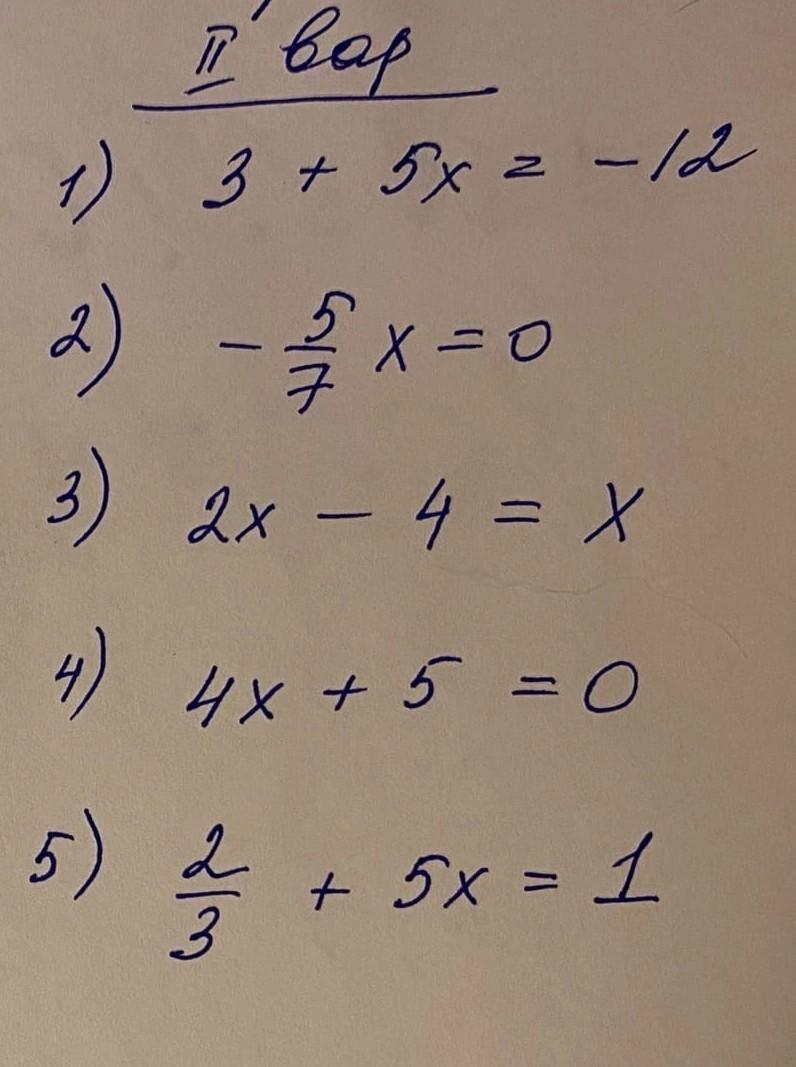 II вар
1) 3 + 5x = -12
2) - 5/7 x = 0
3) 2x - 4 = x
4) 4x + 5 = 0
5) 2/3 + 5x = 1